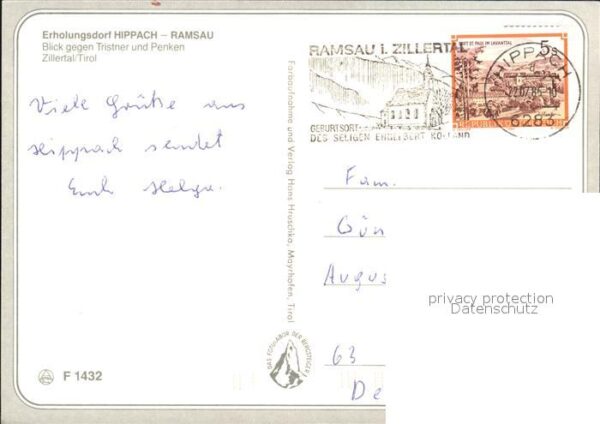 Erholungsdorf HIPPACH – RAMSAU
Blick gegen Tristner und Penken
Zillertal/Tirol
Viele Grüße aus
Hippach sendet
Euch Helga.
Farbaufnahme und Verlag Hans Hruschka, Mayrhofen, Tirol
DAS EDELLABOR DER BERGSTEIGER
F 1432
RAMSAU i. ZILLERTAL
GEBURTSORT
DES SELIGEN ENGELBERT KOLLAND
STIFT ST. PAUL IM LAVANTTAL
5s
HIPPACH
6283
Fam.
Gün
Augus
63
De
privacy protection
Datenschutz